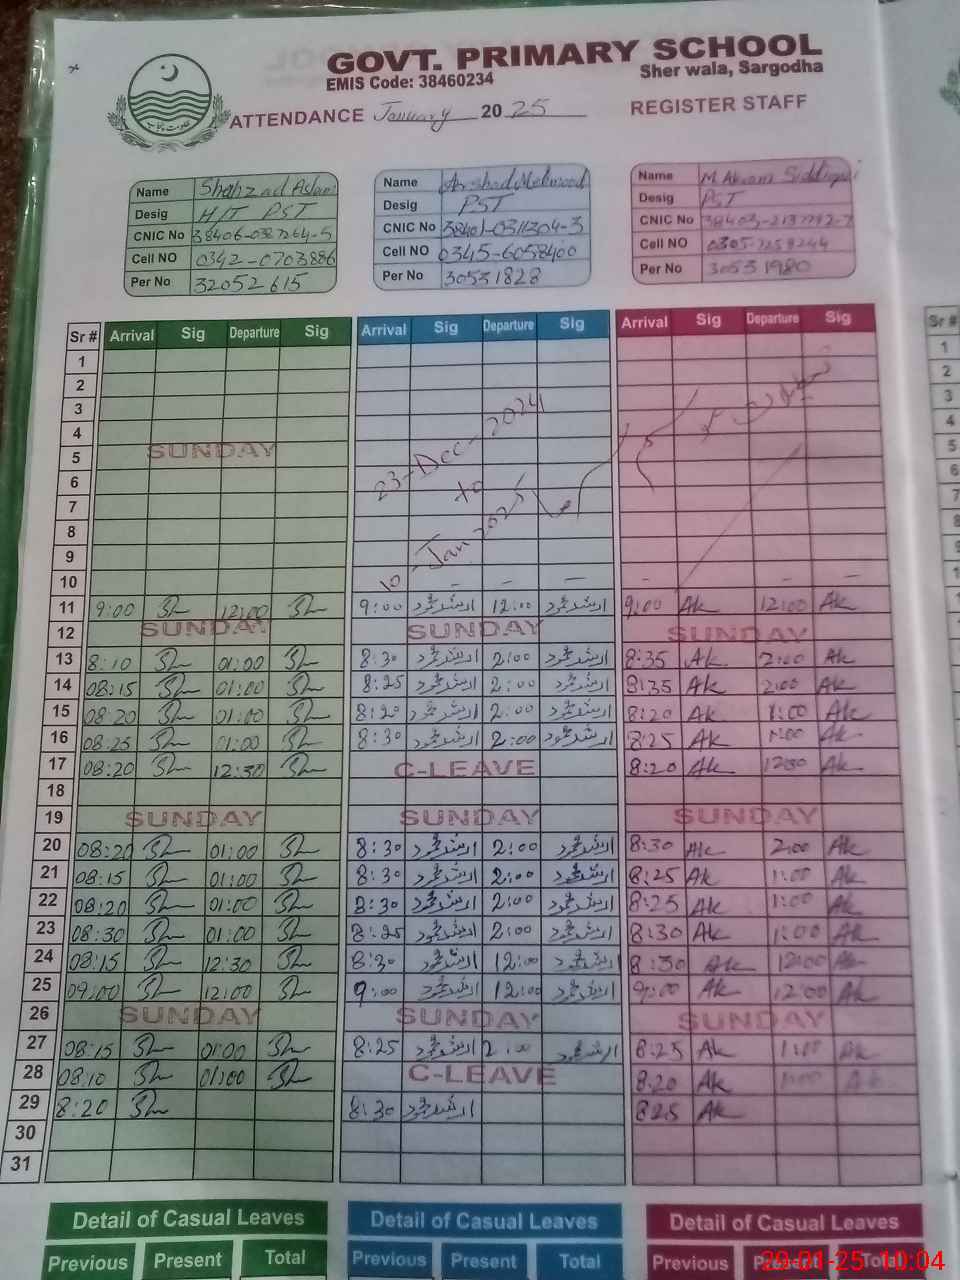 GOVT. PRIMARY SCHOOL
EMIS Code: 38460234 Sher wala, Sargodha
ATTENDANCE January 2025 REGISTER STAFF
Name Shahzad Aslam Name Arshad Mehmood Name M Akram Siddiqui
Desig H/T PST Desig PST Desig PST
CNIC No CNIC No 38401-0311304-3 CNIC No
Cell NO 0342-0703886 Cell NO 0345-6058400 Cell NO
Per No 32052615 Per No 30531828 Per No 30531980
Sr # Arrival Sig Departure Sig Arrival Sig Departure Sig Arrival Sig Departure Sig Sr #
1 1
2 2
3 3
4 23-Dec-2024 4
5 SUNDAY 5
6 to 6
7 7
8 10-Jan-2025
9
10
11 9:00 12:00 9:00 ارشد محمود 12:00 ارشد محمود 9:00 Ak 12:00 Ak
12 SUNDAY SUNDAY SUNDAY
13 8:10 01:00 8:30 ارشد محمود 2:00 ارشد محمود 8:35 Ak 2:00 Ak
14 08:15 01:00 8:25 ارشد محمود 2:00 ارشد محمود 8:35 Ak 2:00 Ak
15 08:20 01:00 8:20 ارشد محمود 2:00 ارشد محمود 8:20 Ak 1:00 Ak
16 08:25 01:00 8:30 ارشد محمود 2:00 ارشد محمود 8:25 Ak 1:00 Ak
17 08:20 12:30 C-LEAVE 8:20 Ak 12:30 Ak
18
19 SUNDAY SUNDAY SUNDAY
20 08:20 01:00 8:30 ارشد محمود 2:00 ارشد محمود 8:30 Ak 2:00 Ak
21 08:15 01:00 8:30 ارشد محمود 2:00 ارشد محمود 8:25 Ak 1:00 Ak
22 08:20 01:00 8:30 ارشد محمود 2:00 ارشد محمود 8:25 Ak 1:00 Ak
23 08:30 01:00 8:25 ارشد محمود 2:00 ارشد محمود 8:30 Ak 1:00 Ak
24 08:15 12:30 8:30 ارشد محمود 12:00 ارشد محمود 8:30 Ak 12:00 Ak
25 09:00 12:00 9:00 ارشد محمود 12:00 ارشد محمود 9:00 Ak 12:00 Ak
26 SUNDAY SUNDAY SUNDAY
27 08:15 01:00 8:25 ارشد محمود 2:00 ارشد محمود 8:25 Ak 1:00 Ak
28 08:10 01:00 C-LEAVE 8:20 Ak 1:00 Ak
29 8:20 8:30 ارشد محمود 8:25 Ak
30
31
Detail of Casual Leaves Detail of Casual Leaves Detail of Casual Leaves
Previous Present Total Previous Present Total Previous Present Total
29-01-25 10:04